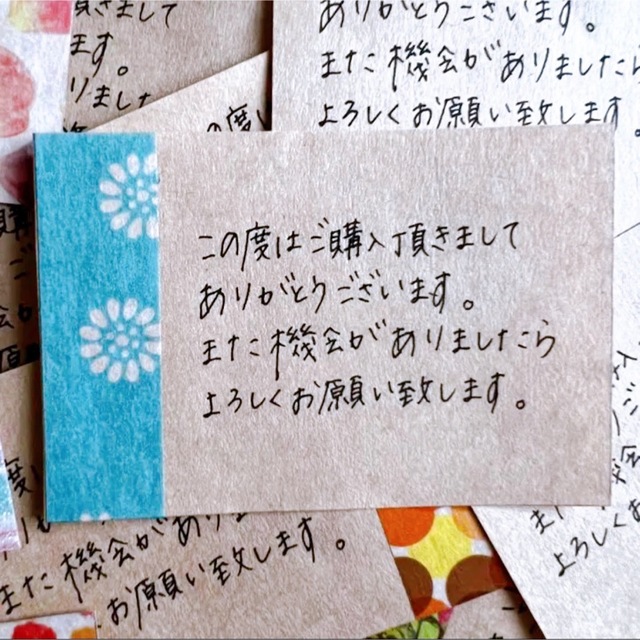 頂きまして
ます。
りました
の度
ありがとうございます。
また機会がありましたら
よろしくお願い致します。
この度はご購入頂きまして
ありがとうございます。
また機会がありましたら
よろしくお願い致します。
また機会があり
お願い致します。